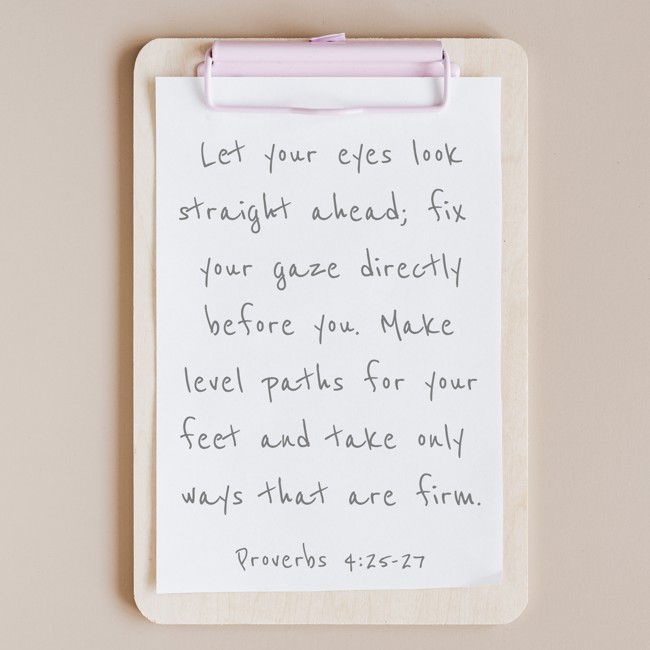 Let your eyes look
straight ahead; fix
your gaze directly
before you. Make
level paths for your
feet and take only
ways that are firm.
Proverbs 4:25-27